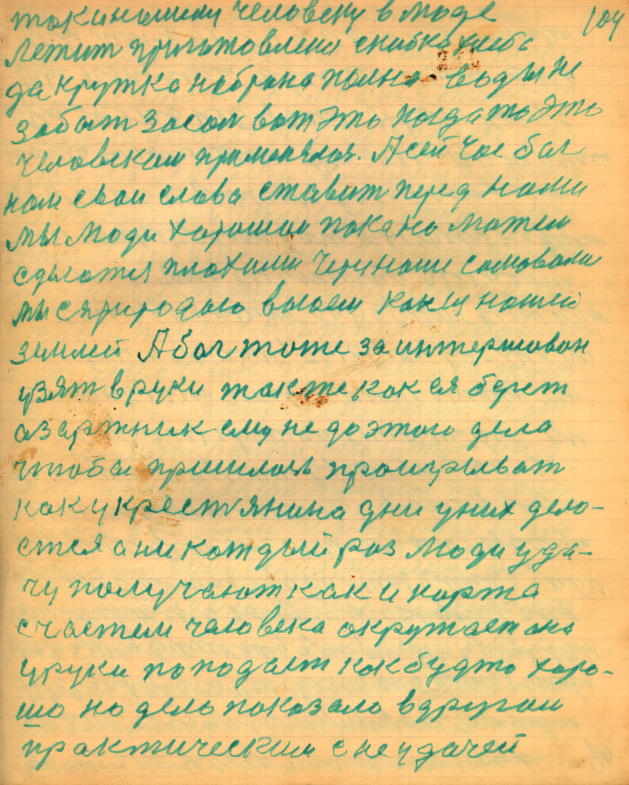 104
таки нашему человеку в люде
летит приготовлена скибка хлеба
да крутко набрана полна воды не
забыт засол вот это тогда то это
человеком применялся. А сейчас бог
нам свои слова ставит перед нами
мы люди хорошии пока но можем
сделатся плохими через наше самоволие
мы с природаю воюем как и нашей
землей А бог тоже заинтересован
узят в руки также как ся берет
азартник ему не до этого дела
чтобы пришлось проигрыват
как у крестянина дни у них дела-
ется а ни каждый раз люди уда-
чу получают как и карта
счастем человека окружает она
у руки попадает как будто хоро-
шо но дело показало в другом
практическим с неудачей